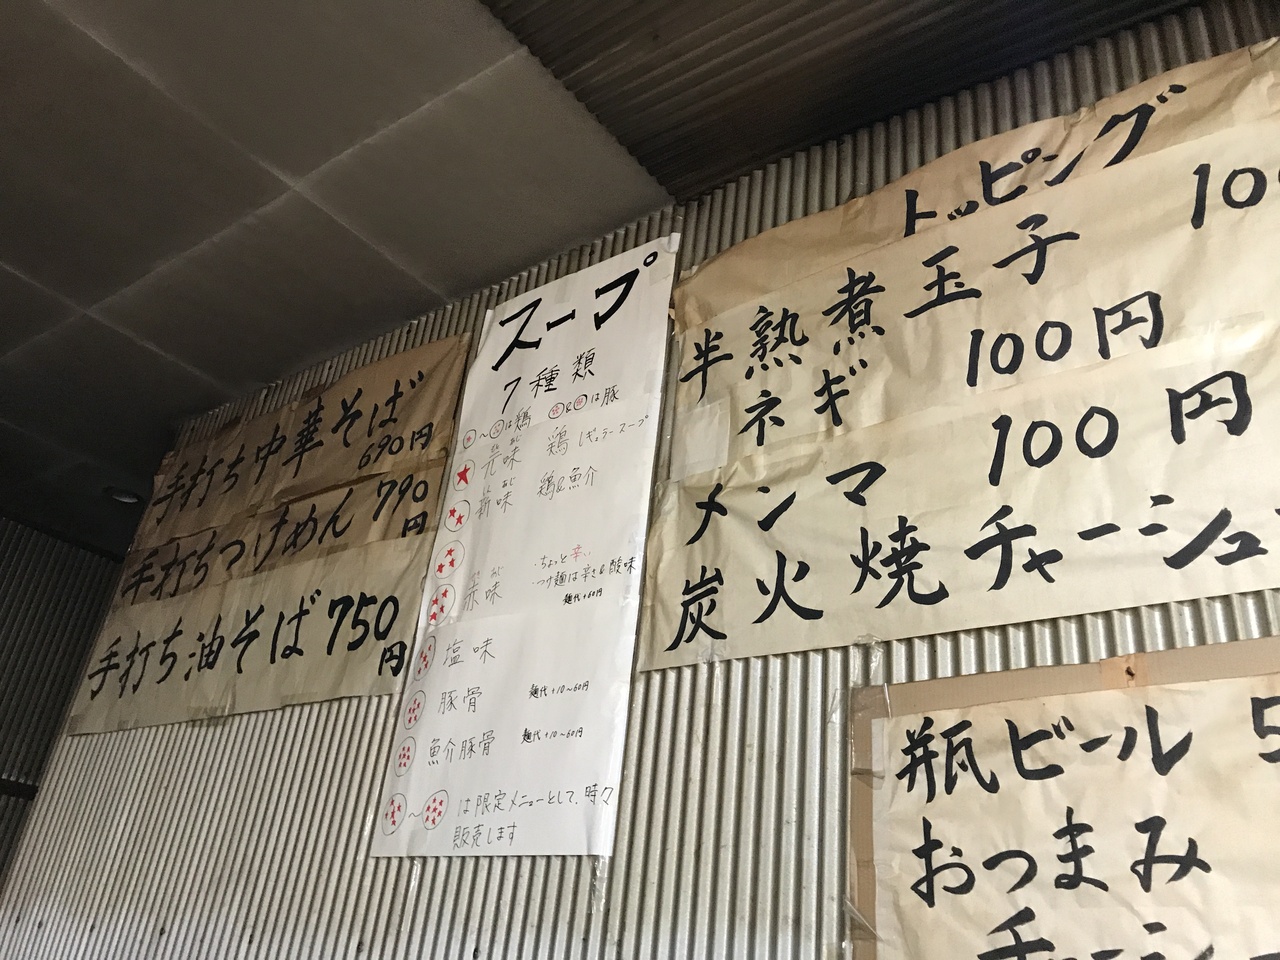 手打ち中華そば
690円
手打ちつけめん 790
円
手打ち油そば750
円
スープ
7種類
は鶏 & は豚
元味 鶏 レギュラースープ
新味 鶏&魚介
・ちょっと辛い
赤味 ・つけ麺は辛さ&酸味
麺代+60円
塩味
豚骨 麺代+10~60円
魚介豚骨 麺代+10~60円
~ は限定メニューとして、時々
販売します
トッピング
半熟煮玉子 100
ネギ 100円
メンマ 100円
炭火焼チャーシュ
瓶ビール 5
おつまみ
チャーシ